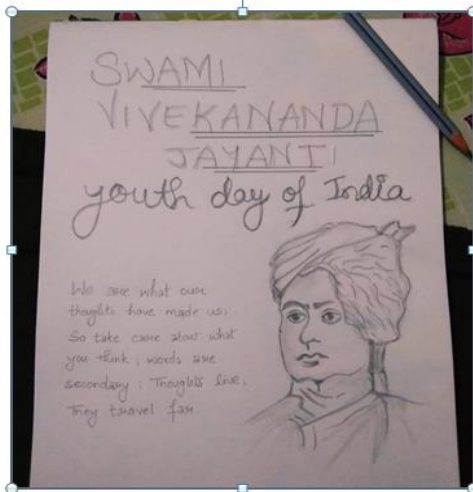 SWAMI
VIVEKANANDA
JAYANTI
youth day of India
We are what our
thoughts have made us;
So take care about what
you think; words are
secondary; Thoughts live;
They travel far.